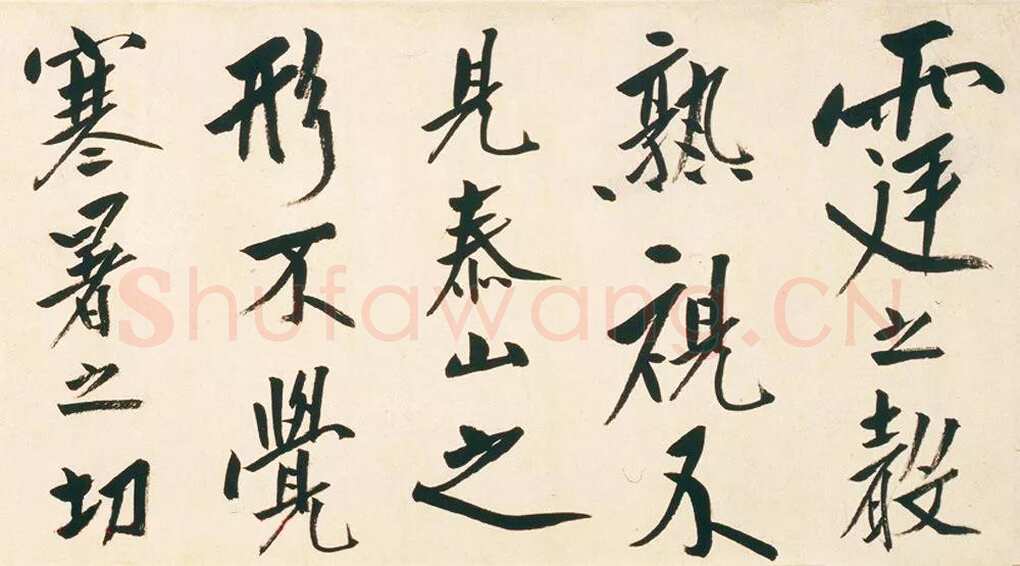 霆之聲
熟視不
見泰山之
形不覺
寒暑之切
Shufawang.CN